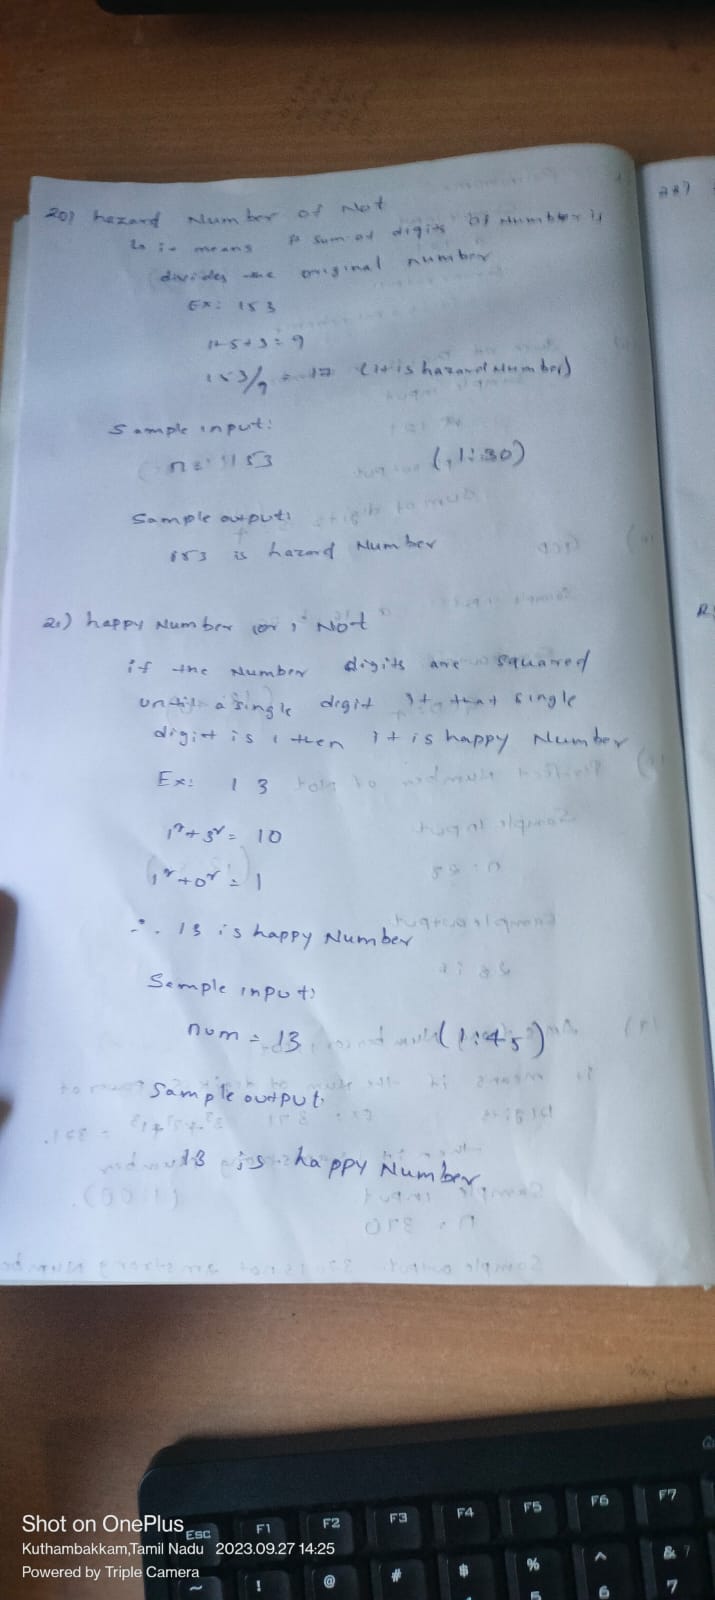 20) hazard Number of Not
it means sum of digits of Number is
divides the original number
Ex: 153
1+5+3=9
153/9 = 17 (it is hazard Number)
Sample input:
n = 153 (1:30)
Sample output:
153 is hazard Number
21) happy Number (or) Not
if the Number digits are squared
until a single digit if that single
digit is 1 then it is happy Number
Ex: 13
1²+3² = 10
1²+0² = 1
∴ 13 is happy Number
Sample input:
num = 13 (1:45)
Sample output:
13 is happy Number
287
Shot on OnePlus
Kuthambakkam,Tamil Nadu 2023.09.27 14:25
Powered by Triple Camera
ESC F1 F2 F3 F4 F5 F6 F7
~ ! @ # $ % ^ & 7
5 6 7